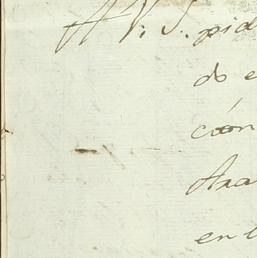 A V. S. pid
do e
ción
Ara
en l